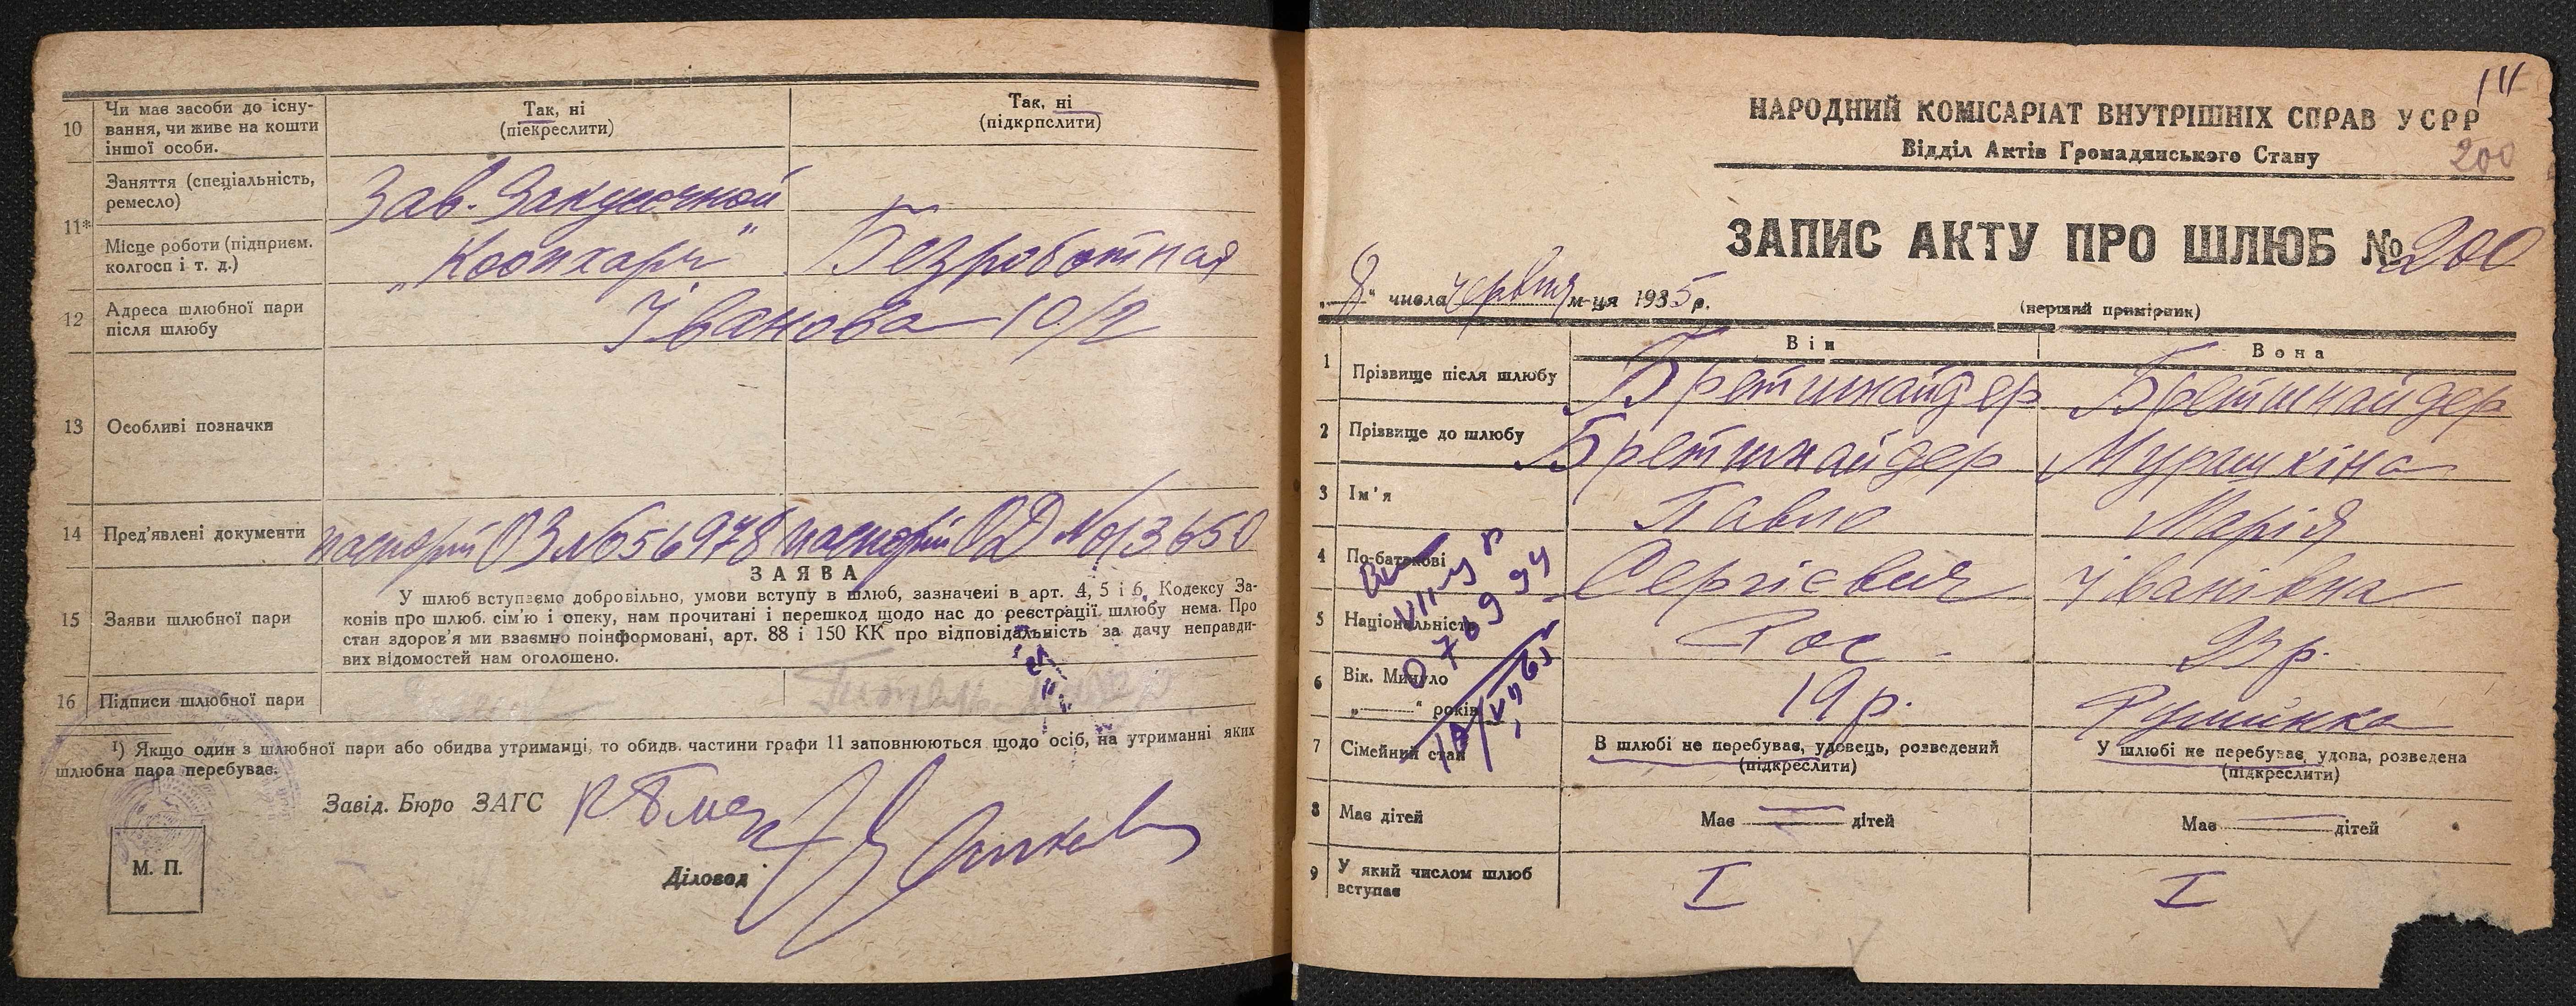 10 Чи має засоби до існу-
вання, чи живе на кошти
іншої особи.
Так, ні
(піекреслити)
Так, ні
(підкрпслити)
11* Заняття (спеціальність,
ремесло)
Зав. Закусочной
Місце роботи (підприєм.
колгосп і т. д.)
„Коопхарч"
Безработная
12 Адреса шлюбної пари
після шлюбу
Іванова 10/2
13 Особливі позначки
14 Пред'явлені документи
паспорт ОЗ №656978
паспорт ОД №013650
ЗАЯВА
15 Заяви шлюбної пари
У шлюб вступаємо добровільно, умови вступу в шлюб, зазначені в арт. 4, 5 і 6, Кодексу За-
конів про шлюб. сім'ю і опеку, нам прочитані і перешкод щодо нас до реєстрації. шлюбу нема. Про
стан здоров'я ми взаємно поінформовані, арт. 88 і 150 КК про відповідальність за дачу неправди-
вих відомостей нам оголошено.
16 Підписи шлюбної пари
1) Якщо один з шлюбної пари або обидва утриманці, то обидв. частини графи 11 заповнюються щодо осіб, на утриманні яких
шлюбна пара перебуває.
Завід. Бюро ЗАГС
Діловод
М. П.
НАРОДНИЙ КОМІСАРІАТ ВНУТРІШНІХ СПРАВ УСРР
Відділ Актів Громадянського Стану
200
ЗАПИС АКТУ ПРО ШЛЮБ № 200
„8" числа червня м-ця 1935 р.
(перший примірник)
Він
Вона
1 Прізвище після шлюбу
Бретшнайдер
Бретшнайдер
2 Прізвище до шлюбу
Бретшнайдер
Мурашкіна
3 Ім'я
Павло
Марія
4 По-батькові
Сергієвич
Іванівна
5 Національність
Рос
23 р.
6 Вік. Минуло
„ " років
19 р.
Руминка
7 Сімейний стан
В шлюбі не перебуває, удовець, розведений
(підкреслити)
У шлюбі не перебуває, удова, розведена
(підкреслити)
8 Має дітей
Має дітей
Має дітей
9 У який числом шлюб
вступає
I
I